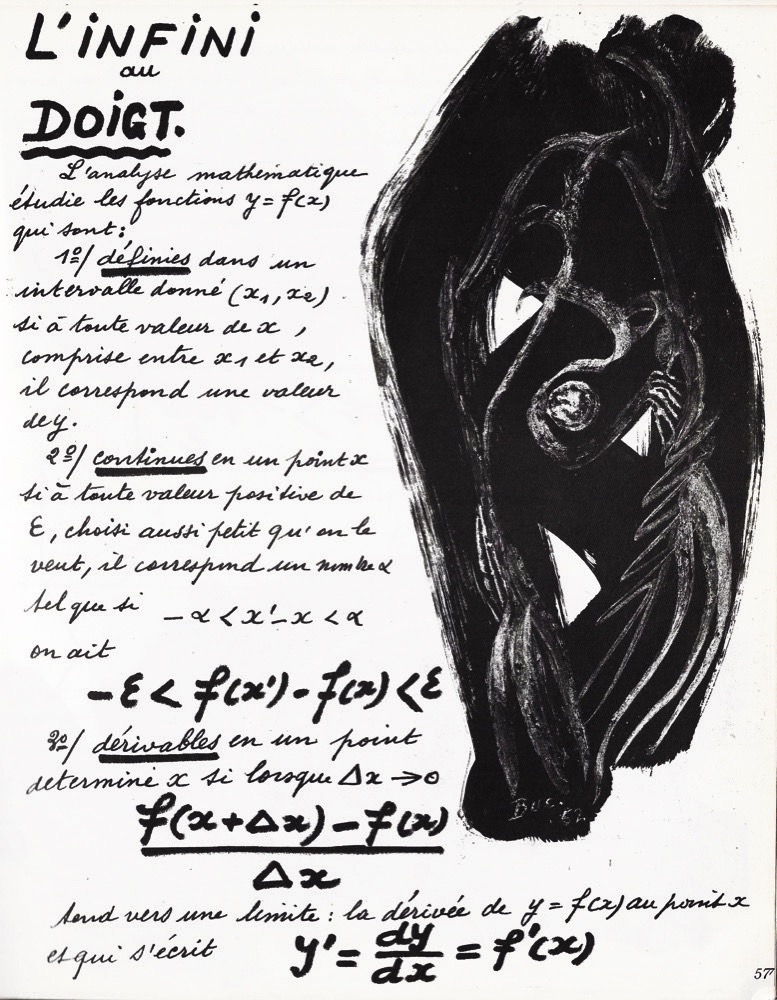 L'iNFiNi
au
DOiGT.
L'analyse mathématique
étudie les fonctions y = f(x)
qui sont :
1º/ définies dans un
intervalle donné (x1, x2)
si à toute valeur de x ,
comprise entre x1 et x2,
il correspond une valeur
de y.
2º/ continues en un point x
si à toute valeur positive de
ε, choisi aussi petit qu'on le
veut, il correspond un nombre α
tel que si - α < x' - x < α
on ait
- ε < f(x') - f(x) < ε
3º/ dérivables en un point
determiné x si lorsque Δx → 0
f(x + Δx) - f(x)
Δx
tend vers une limite : la dérivée de y = f(x) au point x
et qui s'écrit y' = dy/dx = f'(x)
57